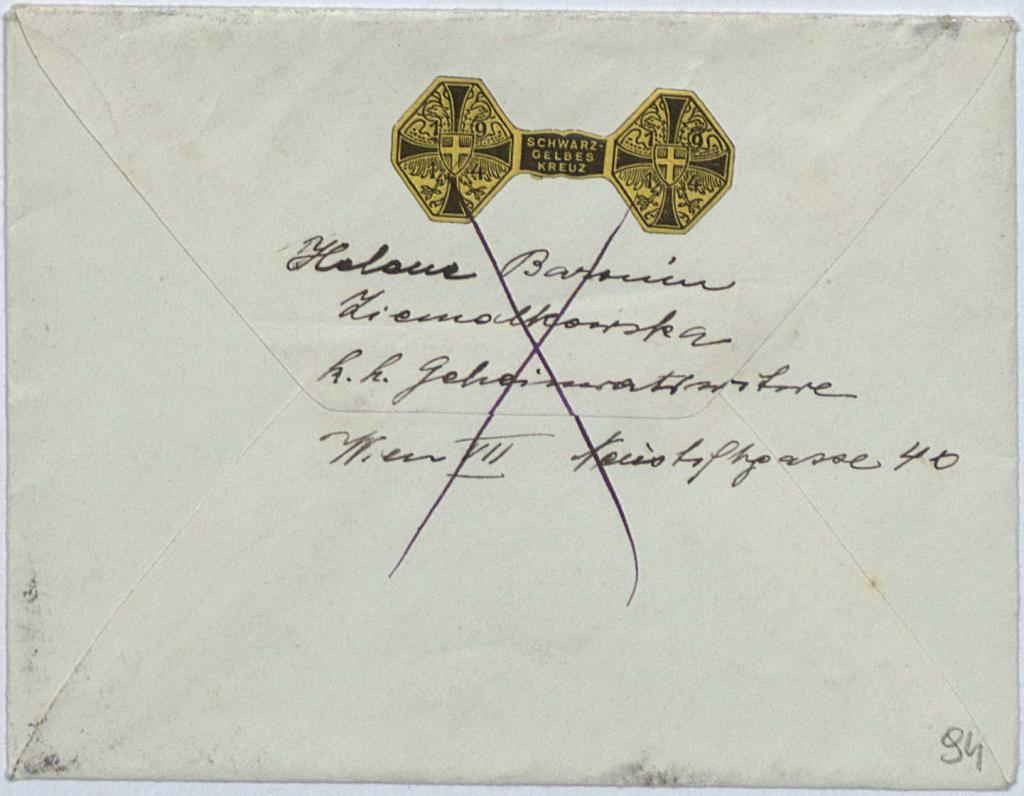 1914
SCHWARZ-
GELBES
KREUZ
1914
Helene Baronin
Ziemalkowska
k. k. Geheimratswitwe
Wien VII Neustiftgasse 40
94